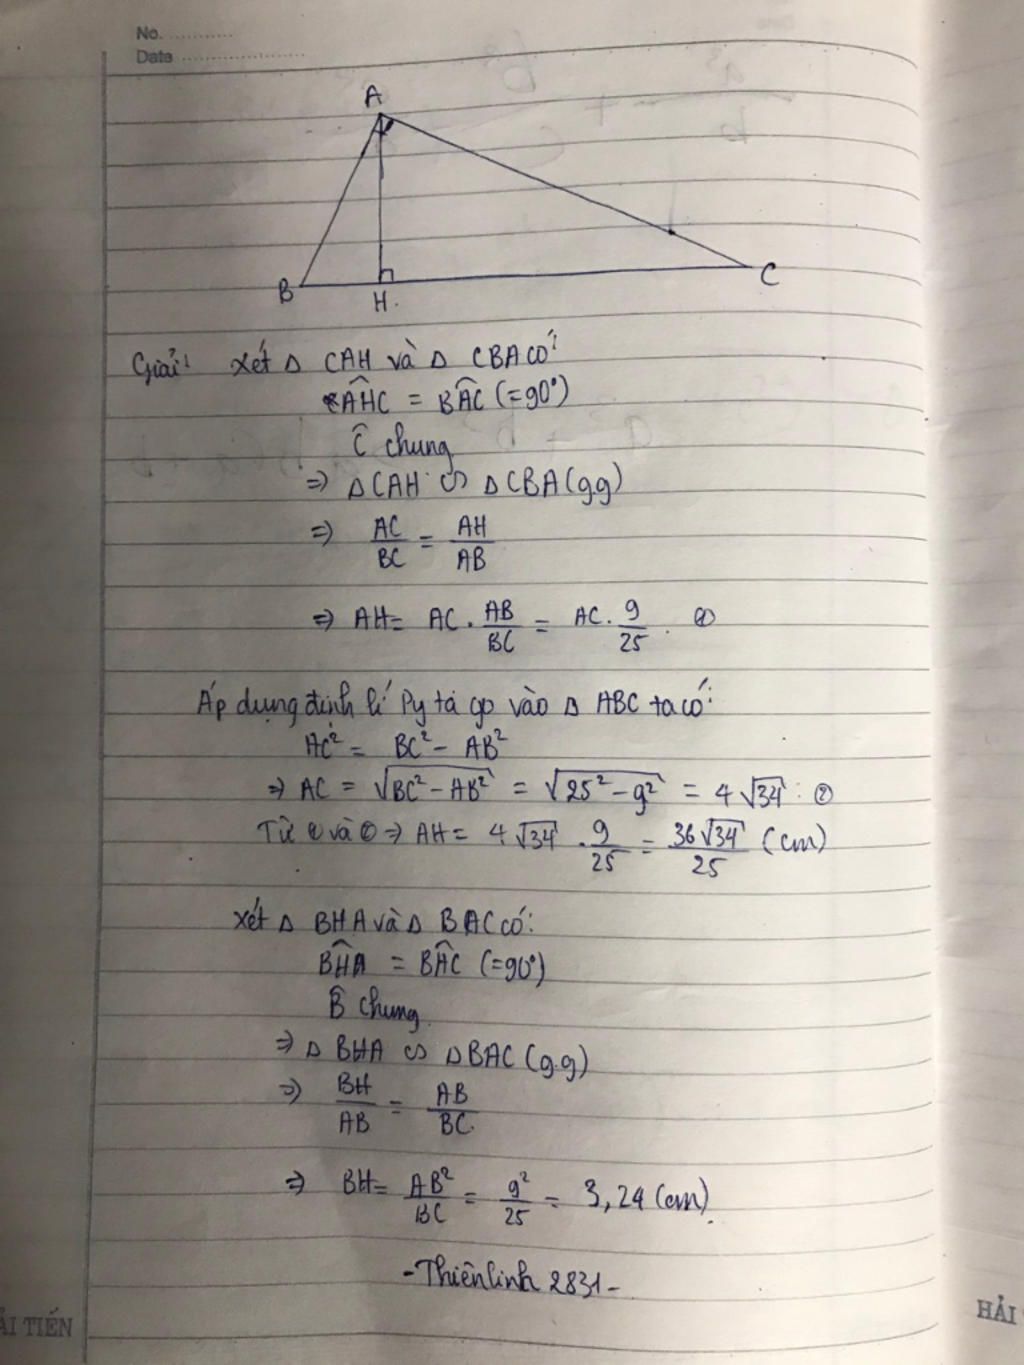 No. ...........
Date .....................
A
B
H.
C
Giải: Xét Δ CAH và Δ CBA có:
AHC = BAC (=90°)
Ĉ chung
=> ΔCAH ∽ ΔCBA (g.g)
=> AC/BC = AH/AB
=> AH = AC . AB/BC = AC . 9/25 . ①
Áp dụng định lí Py ta go vào Δ ABC ta có:
AC² = BC² - AB²
=> AC = √BC² - AB² = √25² - 9² = 4√34 : ②
Từ ① và ② => AH = 4√34 . 9/25 = 36√34/25 (cm)
Xét Δ BHA và Δ BAC có:
BHA = BAC (=90°)
B̂ chung.
=> Δ BHA ∽ ΔBAC (g.g)
=> BH/AB = AB/BC.
=> BH = AB²/BC = 9²/25 = 3,24 (cm).
-Thiênlinh 2831-
ẢI TIẾN
HẢI